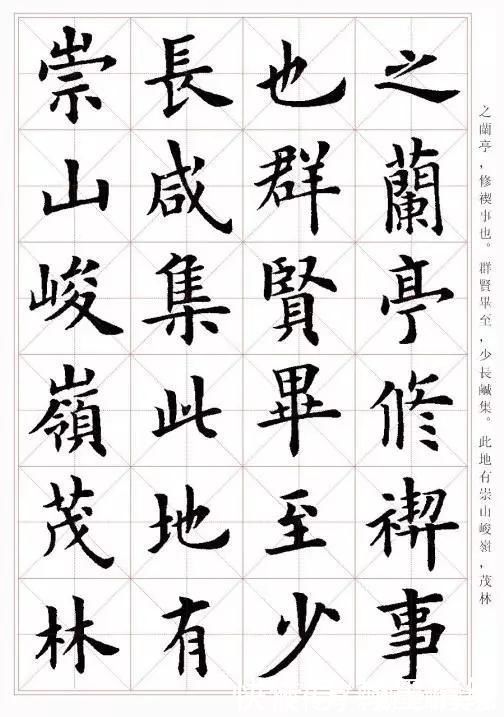 之蘭亭修禊事
也群賢畢至少
長咸集此地有
崇山峻嶺茂林
之蘭亭，修禊事也。群賢畢至，少長鹹集。此地有崇山峻嶺，茂林